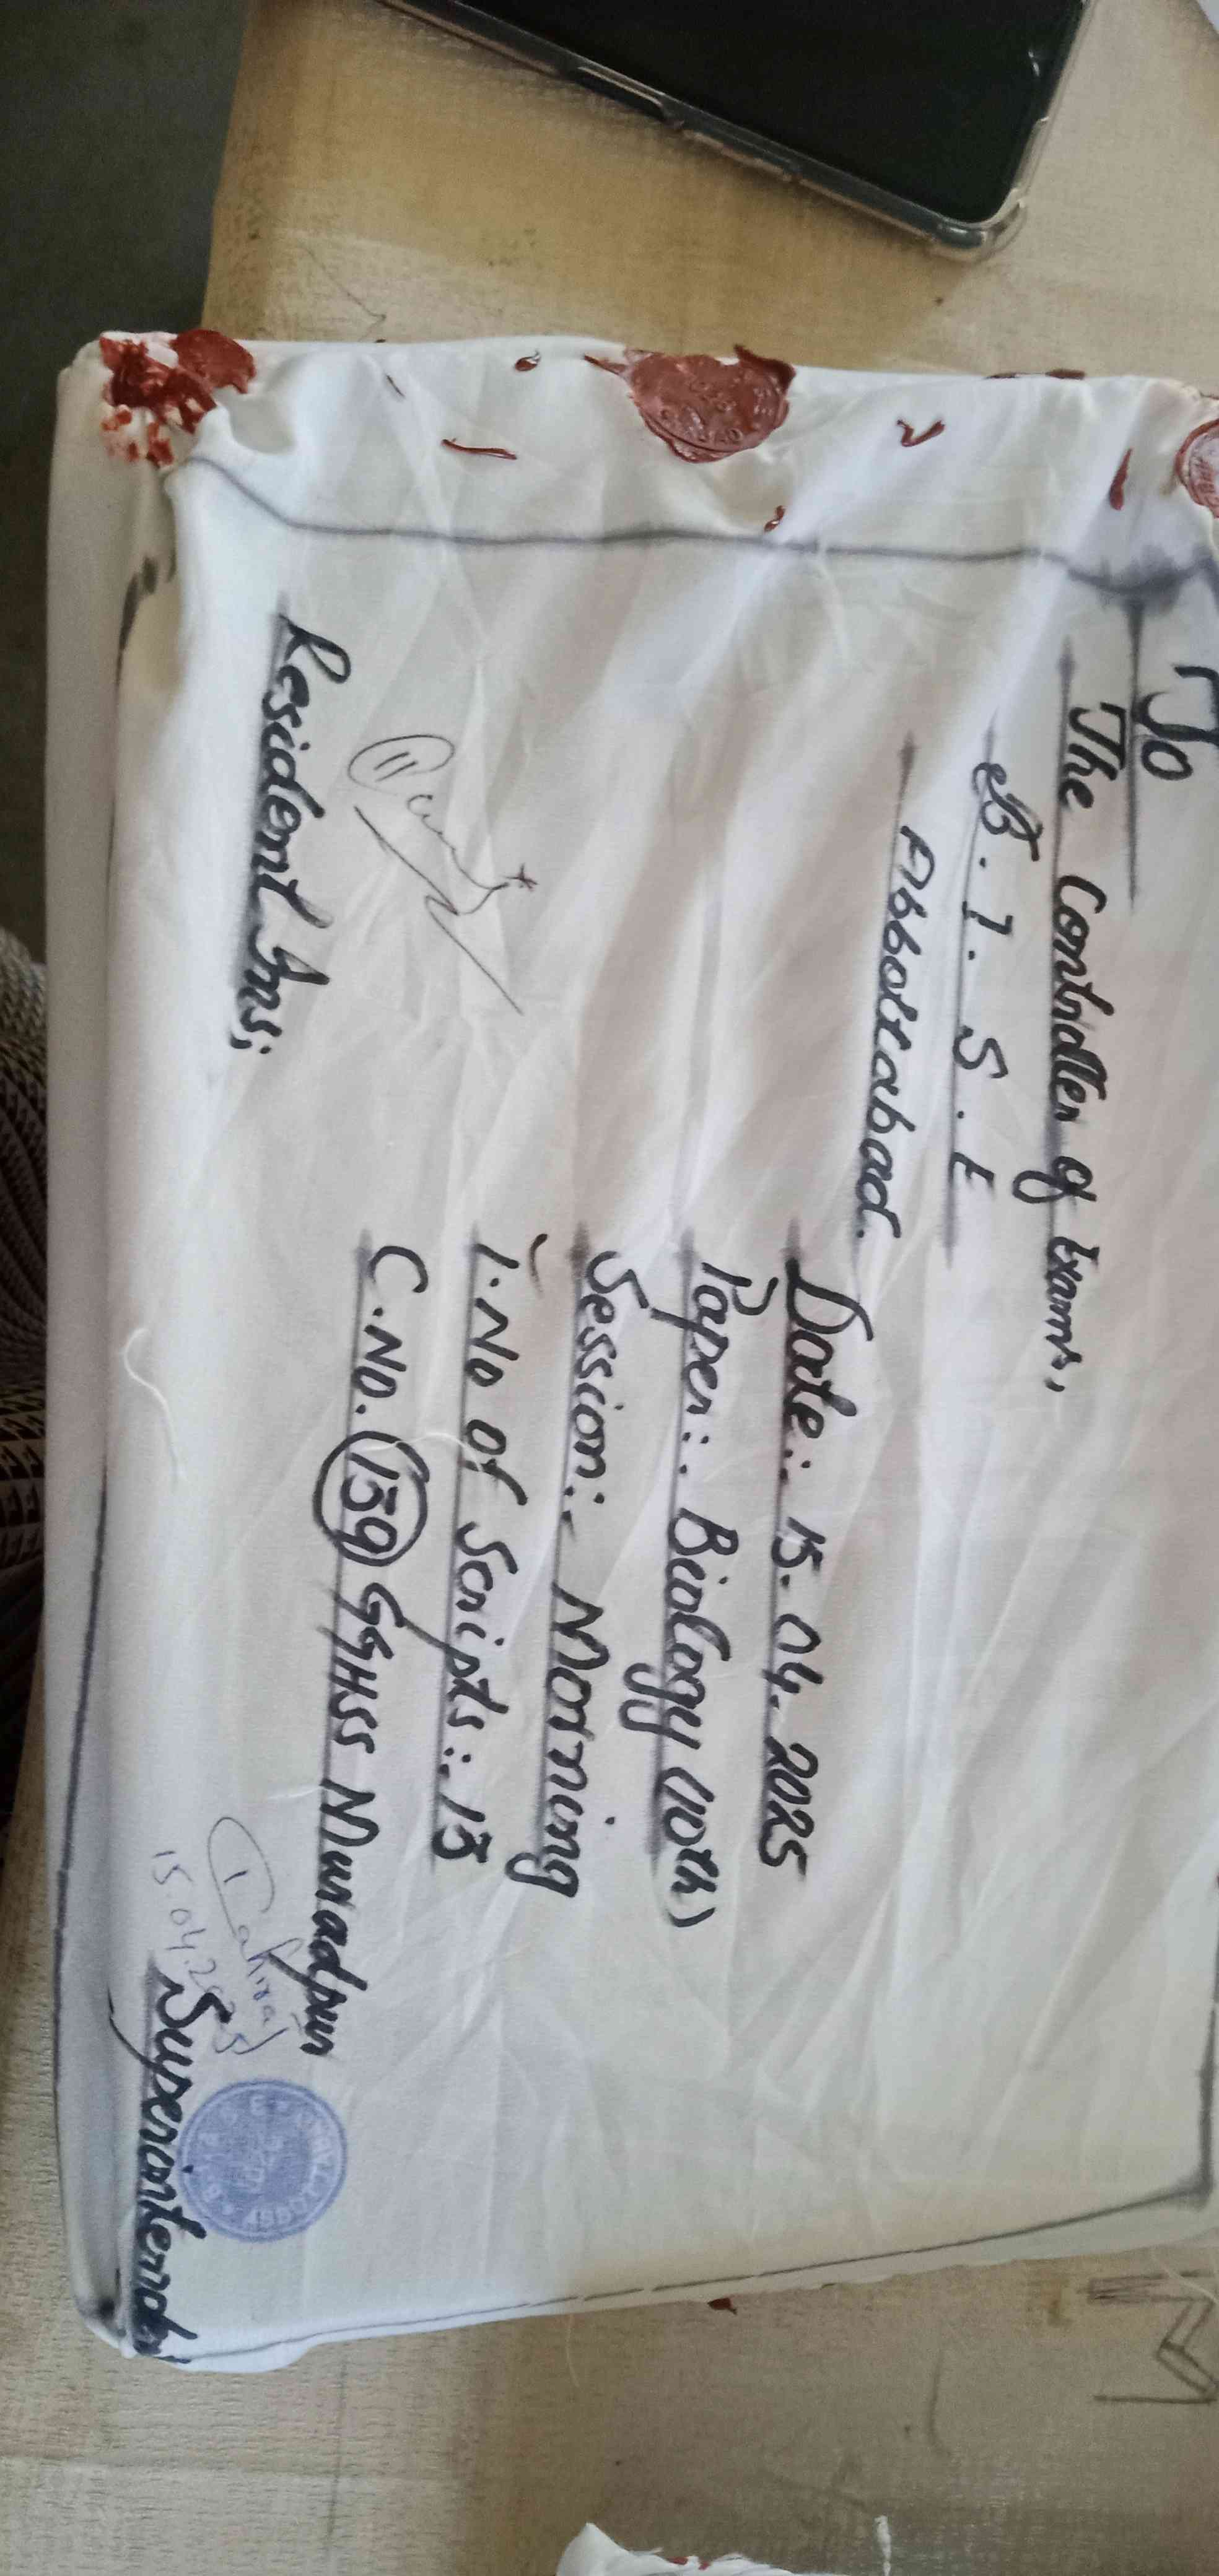 To
The Controller of Exams,
B.I.S.E
Abbottabad.
Date:. 15.04.2025
Paper:. Biology (10th)
Session:. Morning
T.No of Scripts:. 13
C.No. 139 GGHSS Muradpur
Resident Ins;
15.04.2025
Superintendent